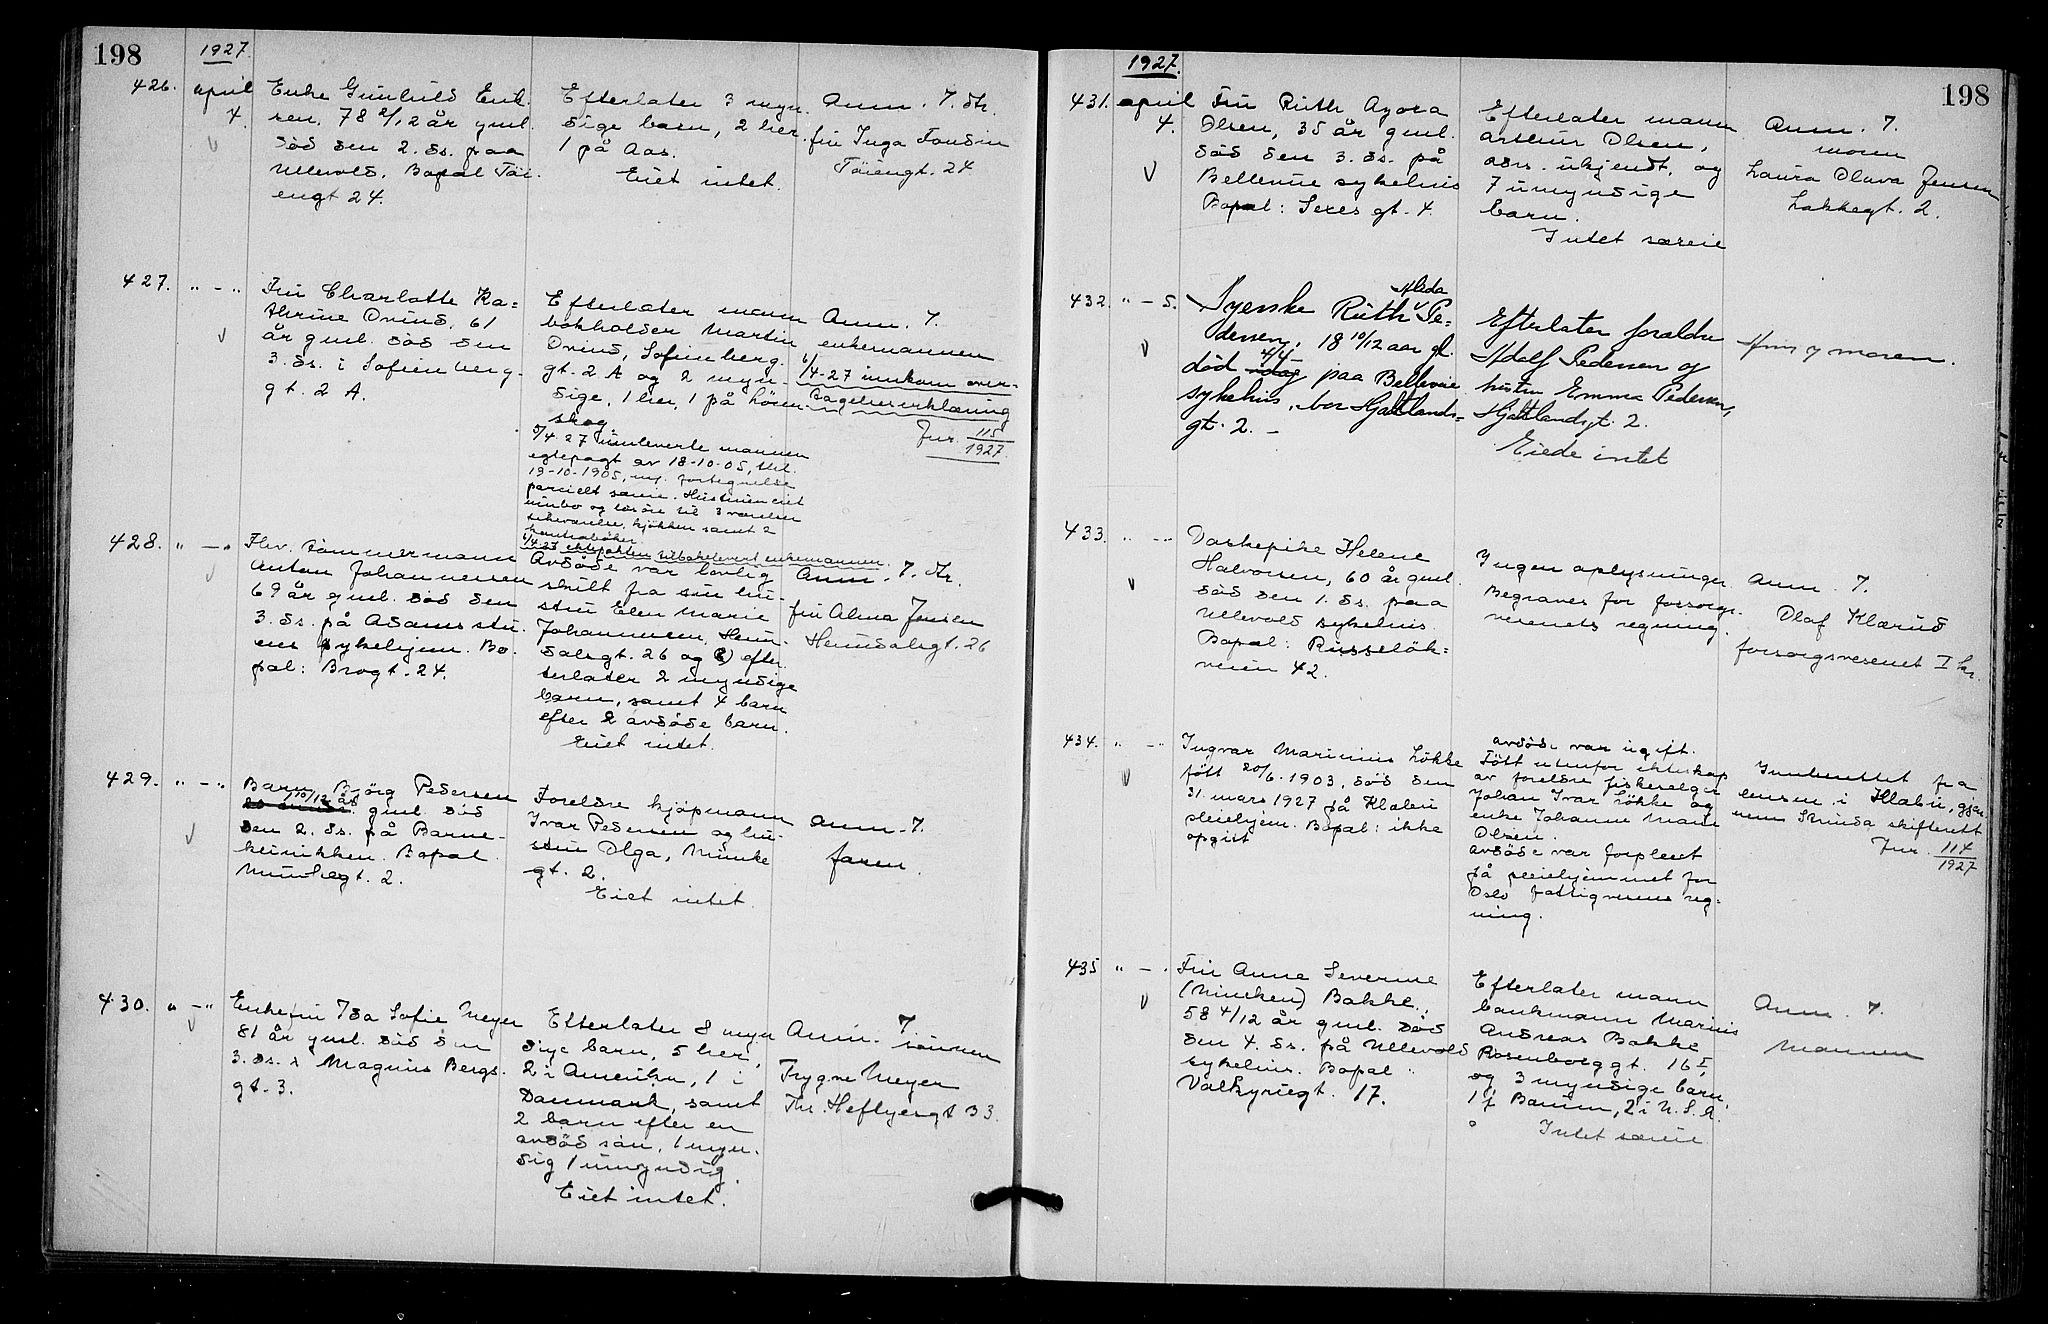 198
1927
426.
april
4.
Enke Gunhild Erik-
sen, 78 2/12 år gml.
död den 2. ds. paa
Ullevold. Bopæl Töi-
engt 24.
Efterlater 3 myn-
dige barn, 2 her.
1 på Aas.
Eiet intet.
Anm. 7. dtr.
fru Inga
Töiengt. 24
427.
" - "
Fru Charlotte Ka=
thrine Ovind, 61
år gml. död den
3. ds. i Sofienberg-
gt. 2 A.
Efterlater mann
bokholder Martin
Ovind, Sofienberg
gt. 2 A og 2 myn-
dige, 1 her, 1 på Lören-
skog
5/4 27 innleverte mannen
egtepagt av 18-10-05, thl.
19-10-1905, m. fortegnelse
parcielt særeie. Hustruen eiet
innbo og lösöre til 3 værelser
pikeværelse, kjökken samt 2
6/4-27 ektepakten tilbakelevert enkemannen.
Anm. 7.
enkemannen
6/4-27 innkom over-
tagelseserklæring
Jnr. 115/1927
428.
" - "
Fhv. tömmermann
Anton Johannessen
69 år gml. död den
3. ds. på Adamstu-
ens sykehjem. Bo-
pæl: Brogt. 24.
Avdöde var lovlig
skilt fra sin hu-
stru Elen Marie
Johannesen, Hem-
dalsgt. 26 og efter-
terlater 2 myndige
barn, samt 4 barn
efter 2 avdöde barn.
Eiet intet.
Anm. 7. dtr.
fru Alma Jensen
Hemdalsgt. 26
429.
" - "
Barn Björg Pedersen
1 10/12 år gml död
den 2. ds. på Barne-
klinikken. Bopæl
Munkegt. 2.
Foreldre kjöpmann
Ivar Pedersen og hu-
stru Olga, Munke
gt. 2.
Eiet intet.
Anm. 7.
faren.
430.
" - "
Enkefru Ida Sofie Meyer
81 år gml. död den
3. ds. i Magnus Bergs-
gt. 3.
Efterlater 8 myn-
dige barn, 5 her,
2 i Amerika, 1 i
Danmark, samt
2 barn efter en
avdöd sön, 1 myn-
dig 1 umyndig.
Eiet intet.
Anm. 7.
sönnen
Trygve Meyer
Thr. Heftyesgt 33.
1927.
198
431.
april
4.
Fru Ruth Agora
Olsen, 35 år gml.
död den 3. ds. på
Bellevue sykehus
Bopæl: Seres gt. 4.
Efterlater mann
Arthur Olsen,
adrs. ukjendt, og
7 umyndige
barn.
Intet særeie
Anm. 7.
moren
Laura Olava Jensen
Lakkegt. 2.
432.
" - 5.
Syerske Ruth Alida Pe=
dersen, 18 10/12 aar gl.
död idag 4/4 paa Bellevue
sykehus, bor Hjaltlands=
gt. 2. -
Efterlater foreldre
Adolf Pedersen og
hustru Emma Pedersen,
Hjaltlandsgt. 2.
Eiede intet
Anm 7 moren.
433.
" - "
Vaskepike Helene
Halvorsen, 60 år gml.
död den 1. ds. paa
Ullevold sykehus.
Bopæl: Russelök=
veien 42.
Ingen oplysninger
Begraves for forsorgs-
vesenets regning.
Anm. 7.
Olaf Klærud
forsorgsvesenet I kr.
434.
" - "
Ingvar Marinius Lökke
född 20/6-1903, död den
31. mars 1927 på Klæbu
pleiehjem. Bopæl: ikke
opgitt
Avdöde var ugift.
Född utenfor ekteskap
av foreldre fiskeselger
Johan Ivar Lökke og
enke Johanne Marie
Olsen.
Avdöde var forpleiet
på pleiehjemmet for
Oslo fattigvesens reg-
ning.
Innberettet fra
lensm. i Klæbu, gjen-
nem Strinda skifterett
Jnr. 114/1927
435
" - "
Fru Anne Severine
(Nincken) Bakke.
58 4/12 år gml. död
den 4. ds. på Ullevold
sykehus. Bopæl
Valkyriegt. 17.
Efterlater mann
bankmann Marius
Andreas Bakke
Rosenborggt. 16 I,
og 3 myndige barn,
1 i Bærum, 2 i U.S.A.
Intet særeie
Anm. 7.
Mannen